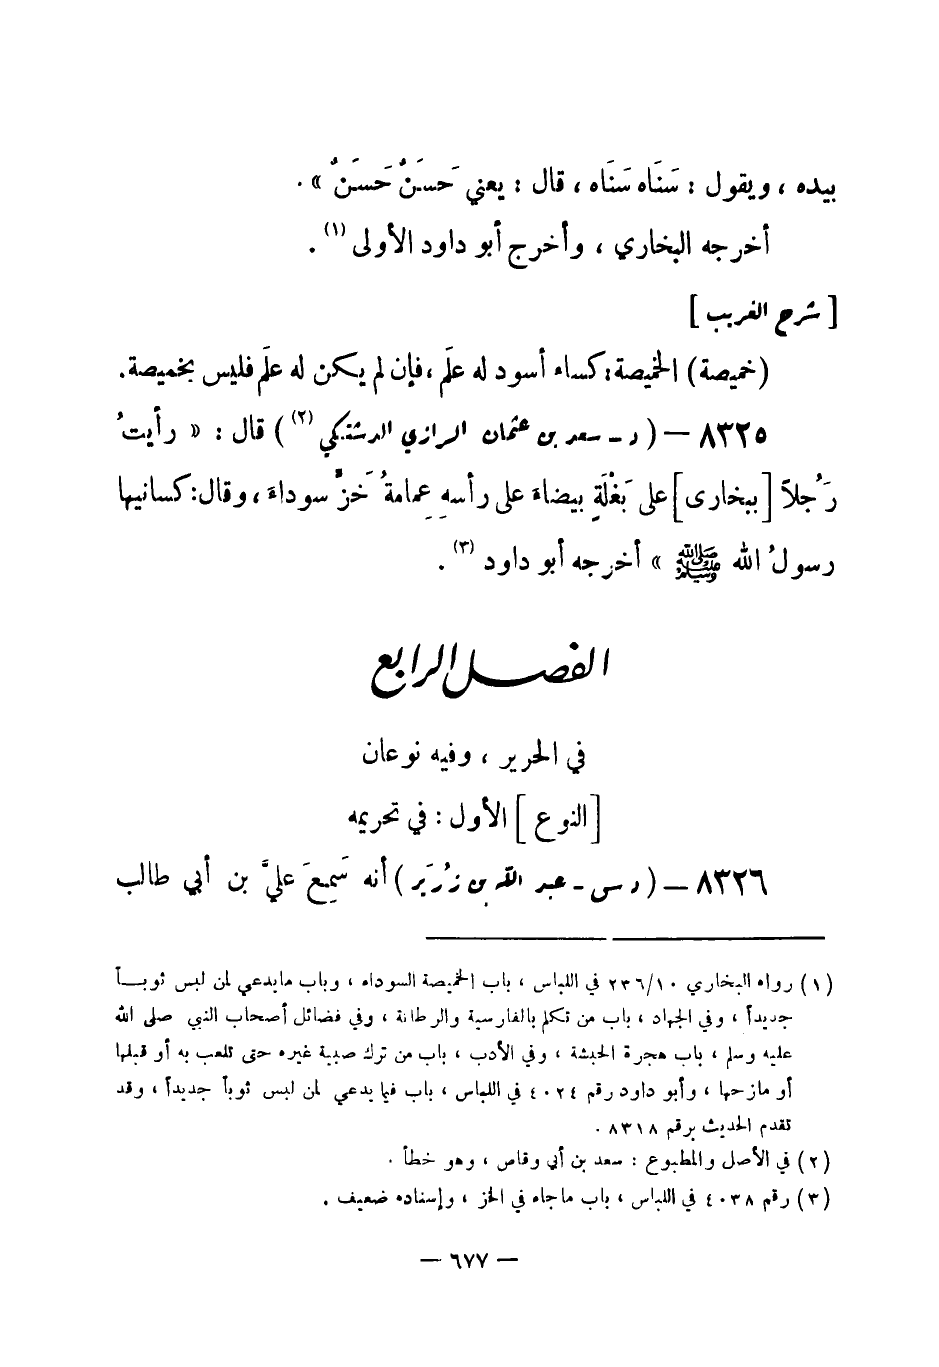 بيده ، ويقول : سَنَاه سَنَاه ، قال : يعني حَسَنٌ حَسَنٌ » .
أخرجه البخاري ، وأخرج أبو داود الأولى (١) .
[ شرح الغريب ]
( خميصة ) الخميصة : كساء أسود له علَم ، فإن لم يكن له علَم فليس بخميصة .
٨٣٢٥ — ( د ـ سعد بن عثمان الرازي الدشتكي (٢) ) قال : « رأيتُ
رَجُلاً [ ببخارى ] على بَغْلَةٍ بيضاءَ على رأسهِ عِمامةُ خَزٍّ سوداءَ ، وقال : كسانيها
رسولُ الله ﷺ » أخرجه أبو داود (٣) .
الفصل الرابع
في الحرير ، وفيه نوعان
[ النوع ] الأول : في تحريمه
٨٣٢٦ — ( د س ـ عبد اللّه بن زُرَير ) أنه سَمِعَ عليَّ بن أبي طالب
(١) رواه البخاري ٢٣٦/١٠ في اللباس ، باب الخميصة السوداء ، وباب مايدعى لمن لبس ثوبـــاً
جديداً ، وفي الجهاد ، باب من تكلم بالفارسية والرطانة ، وفي فضائل أصحاب النبي صلى الله
عليه وسلم ، باب هجرة الحبشة ، وفي الأدب ، باب من ترك صبية غيره حتى تلعب به أو قبلها
أو مازحها ، وأبو داود رقم ٤٠٢٤ في اللباس ، باب فيما يدعى لمن لبس ثوباً جديداً ، وقد
تقدم الحديث برقم ٨٣١٨ .
(٢) في الأصل والمطبوع : سعد بن أبي وقاص ، وهو خطأ .
(٣) رقم ٤٠٣٨ في اللباس ، باب ماجاء في الخز ، وإسناده ضعيف .
— ٦٧٧ —